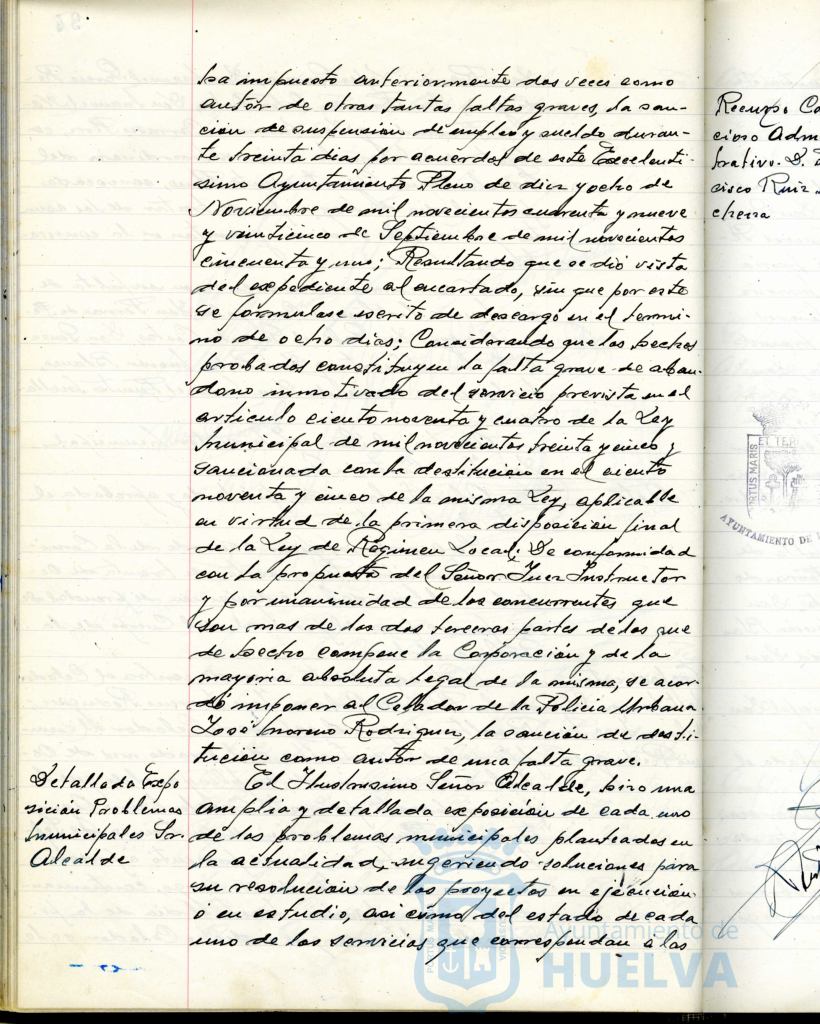 ha impuesto anteriormente dos veces como
autor de otras tantas faltas graves, la san-
ción de suspensión de empleo y sueldo duran-
te treinta días por acuerdos de este Excelentí-
simo Ayuntamiento Pleno de diez y ocho de
Noviembre de mil novecientos cuarenta y nueve
y veinticinco de Septiembre de mil novecientos
cincuenta y uno; Resultando que se dió vista
del expediente al encartado, sin que por este
se formulase escrito de descargo en el termi-
no de ocho días; Considerando que los hechos
probados constituyen la falta grave de aban-
dono inmotivado del servicio prevista en el
articulo ciento noventa y cuatro de la Ley
Municipal de mil novecientos treinta y cinco y
sancionada con la destitución en el ciento
noventa y cinco de la misma Ley, aplicable
en virtud de la primera disposición final
de la Ley de Régimen Local. De conformidad
con la propuesta del Señor Juez Instructor
y por unanimidad de los concurrentes que
son mas de las dos terceras partes de los que
de hecho compone la Corporación y de la
mayoria absoluta legal de la misma, se acor-
dó imponer al Celador de la Policia Urbana
José Moreno Rodriguez, la sanción de desti-
tución como autor de una falta grave.
Detallada Expo
sición Problemas
Municipales Sr.
Alcalde
El Ilustrisimo Señor Alcalde, hizo una
amplia y detallada exposición de cada uno
de los problemas municipales planteados en
la actualidad, sugeriendo soluciones para
su resolución de los proyectos en ejecución
ó en estudio, así como del estado de cada
uno de los servicios que correspondan a las
Recurso Co
cioso Adm
trativo. D.
cisco Ruiz
chena
PORTUS MARIS ET TER
AYUNTAMIENTO DE
Ayuntamiento de
HUELVA